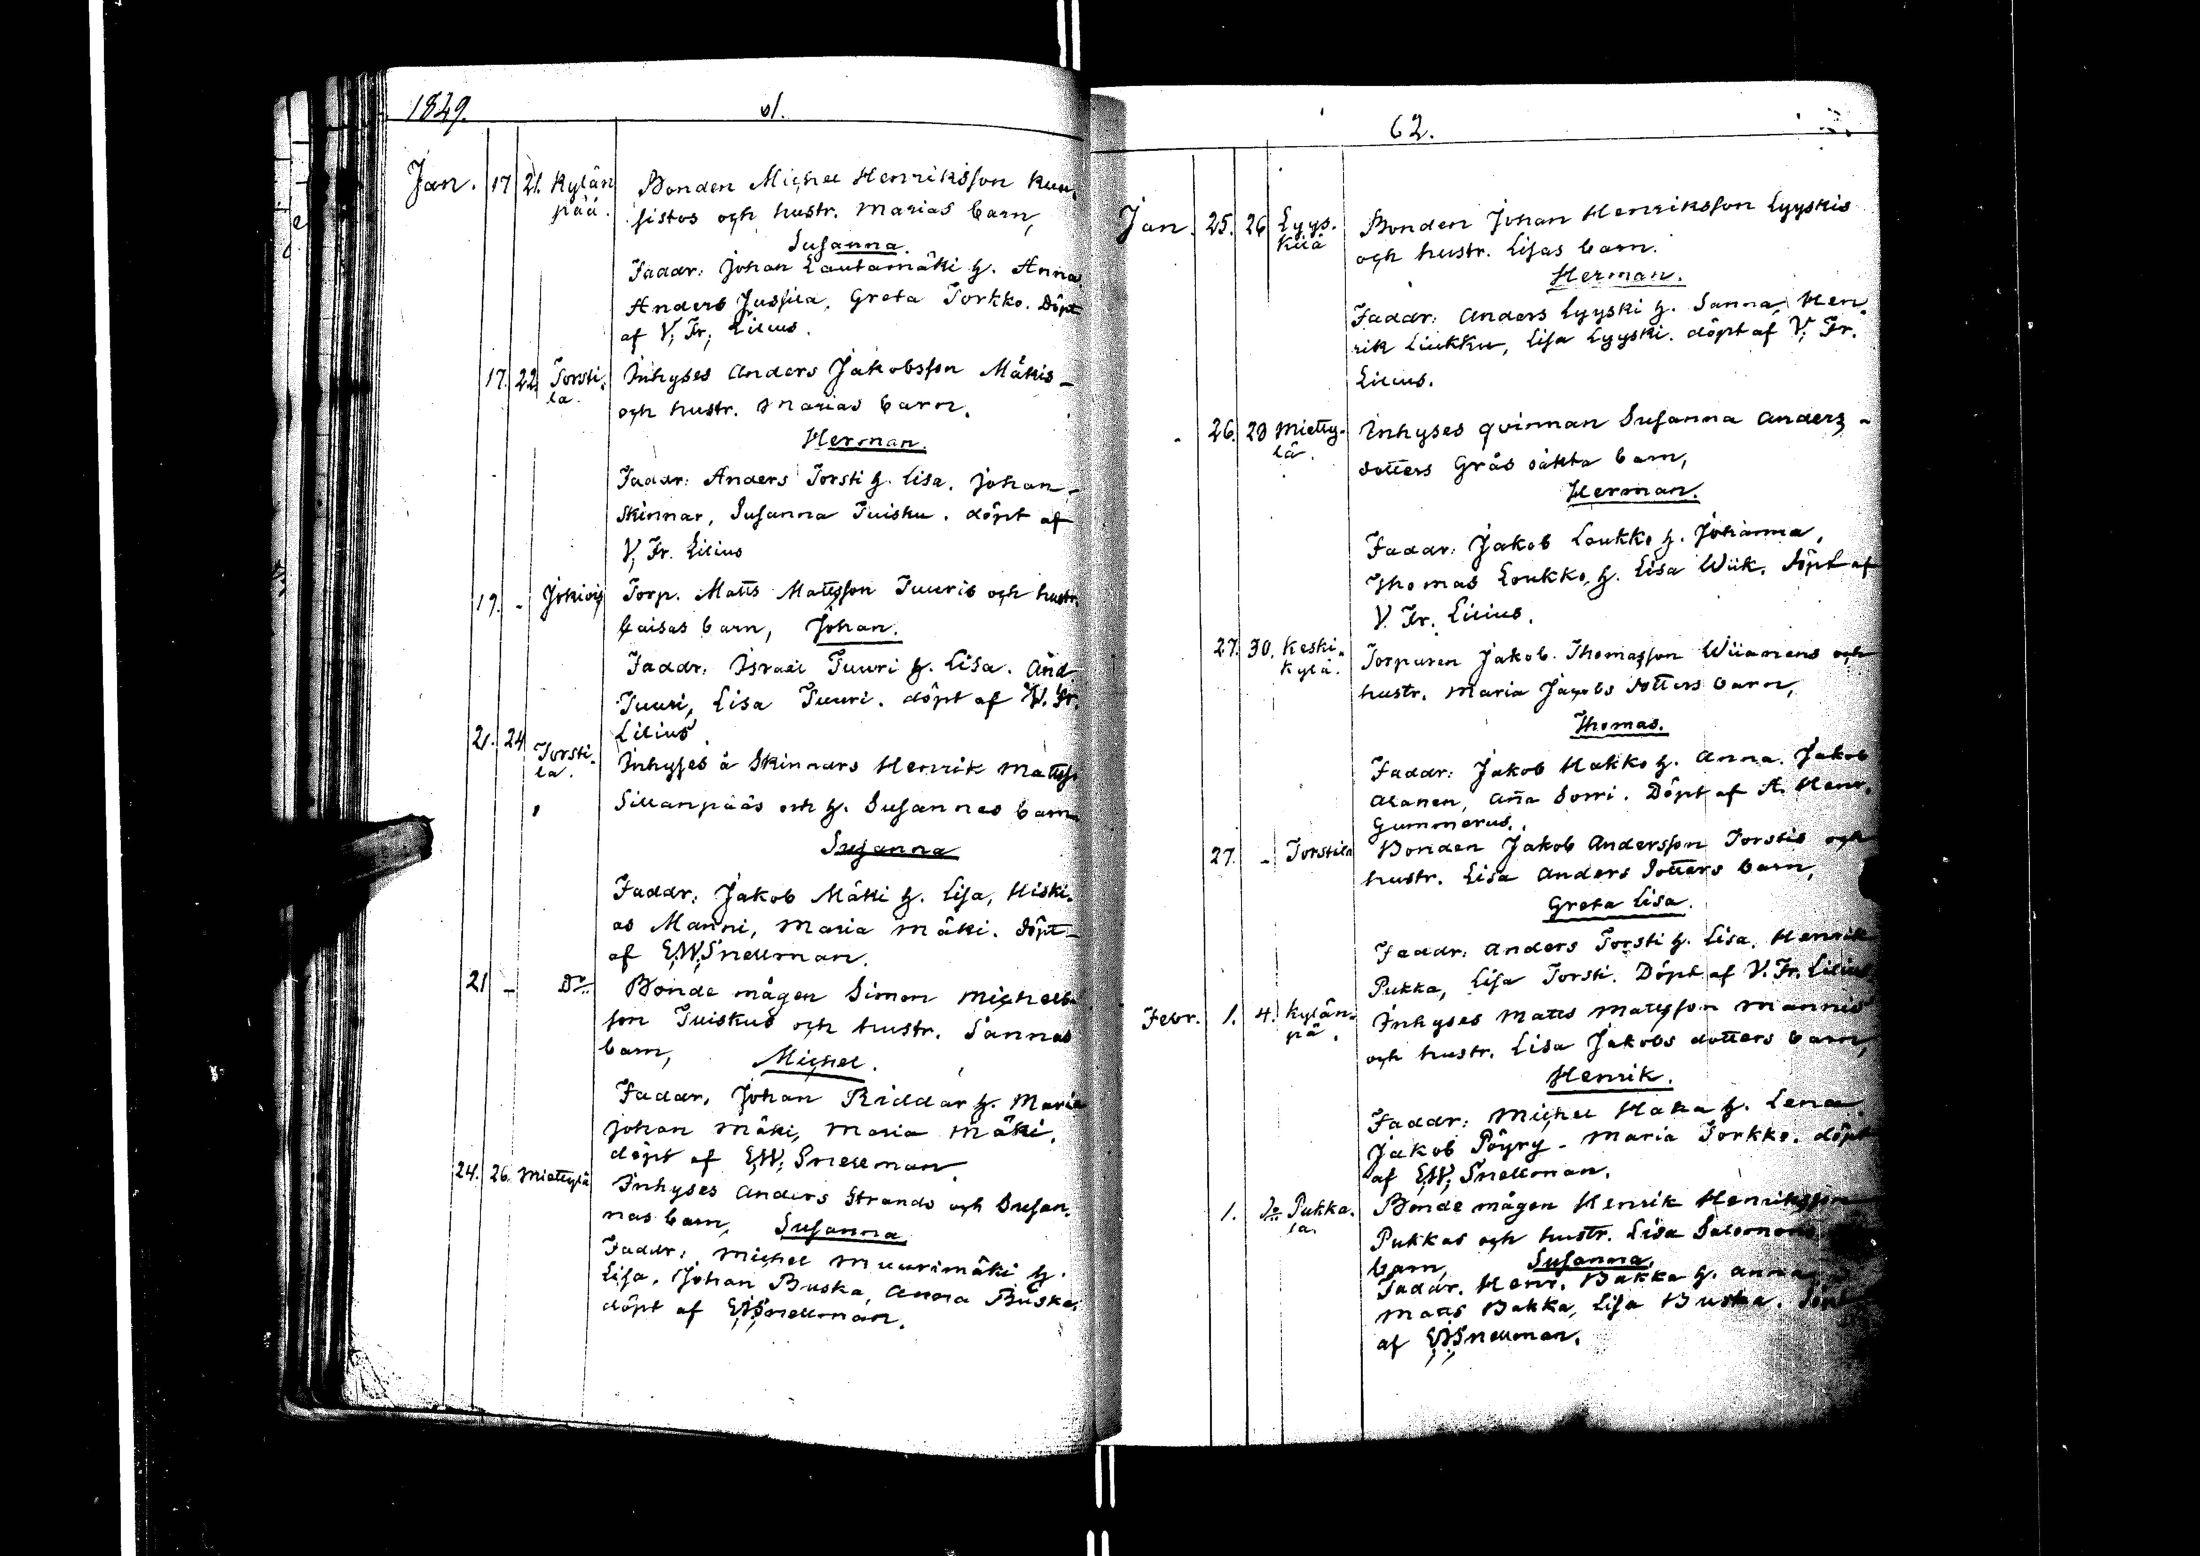 1829. 61.
Jan. 17 21. Kylän Bonden Michel Henriksson Kun,
pää. sistos och hustr. Marias barn,
Susanna.
Faddr: Johan Lautamäki h. Anna,
Anders Jussila, Greta Torkko. Döpt
af V, Fr, Lilius.
17. 22 Torsti, Inhyses Anders Jakobsson Mäkis
la. och hustr. Marias barn.
Herman.
Faddr: Anders Torsti h. Lisa. Johan
Skinnar, Susanna Tuisku. döpt af
V, Fr. Lilius
19. - Jokiois Torp. Matts Mattsson Tuuris och hustr.
Caisas barn, Johan.
Faddr: Israel Tuuri h. Lisa. And
Tuuri, Lisa Tuuri. döpt af V. Fr.
21. 24 Lilius
Torsti- Inhyses å Skinnars Henrik Mattss.
la.
Sillanpääs och h. Susannas barn
Susanna
Faddr: Jakob Mäki h. Lisa, Hiski-
as Manni, Maria Mäki. döpt
af E,W,Snellman.
21 - Do Bonde mågen Simon Michels-
son Tuiskus och hustr. Sannas
barn, Michel.
Faddr, Johan Riddar h. Maria
Johan Mäki, Maria Mäki.
döpt af E,W, Snellman
24. 26. Miettylä Inhyses Anders Strands och Susan-
nas barn, Susanna
Faddr: Michel Muurimäki h.
Lisa, Johan Buska, Anna Buska,
döpt af E,W,Snellman.
62.
Jan. 25. 26 Lyys- Bonden Johan Henriksson Lyyskis
kilä och hustr. Lisas barn.
Herman.
Faddr: Anders Lyyski h. Sanna, Hen-
rik Liukku, Lisa Lyyski. döpt af V, Fr.
Lilius.
26. 28 Mietty- Inhyses qvinnan Susanna Anders-
lä. dotters Grås oäkta barn,
Herman.
Faddr: Jakob Loukko h. Johanna,
Thomas Loukko, h. Lisa Wiik. döpt af
V. Fr. Lilius.
27. 30. Keski- Torparen Jakob Thomasson Wiiamens och
kylä. hustr. Maria Jacobs dotters barn,
Thomas.
Faddr: Jakob Hakko h. Anna. Jakob
Alanen, Aña Sorri. Döpt af A. Henr.
Gummerus.
27. - Torstila Bonden Jakob Andersson Torstis och
hustr. Lisa Anders dotters barn,
Greta Lisa.
Faddr: Anders Torsti h. Lisa, Henrik
Pukka, Lisa Torsti. Döpt af V. Fr. Lilius
Febr. 1. 4. Kylän- Inhyses Matts Mattsson Mannis
pä. och hustr. Lisa Jakobs dotters barn,
Henrik.
Faddr: Michel Haka h. Lena
Jakob Pöyry - Maria Torkko. döpt
af E,W, Snellman.
1. Do Pukka- Bonde mågen Henrik Henriksson
la. Pukkas och hustr. Lisa Salomons
barn, Susanna,
Faddr. Henr. Bakka h. Anna
Matts Bakka, Lisa Buska. döpt
af E,W,Snellman.